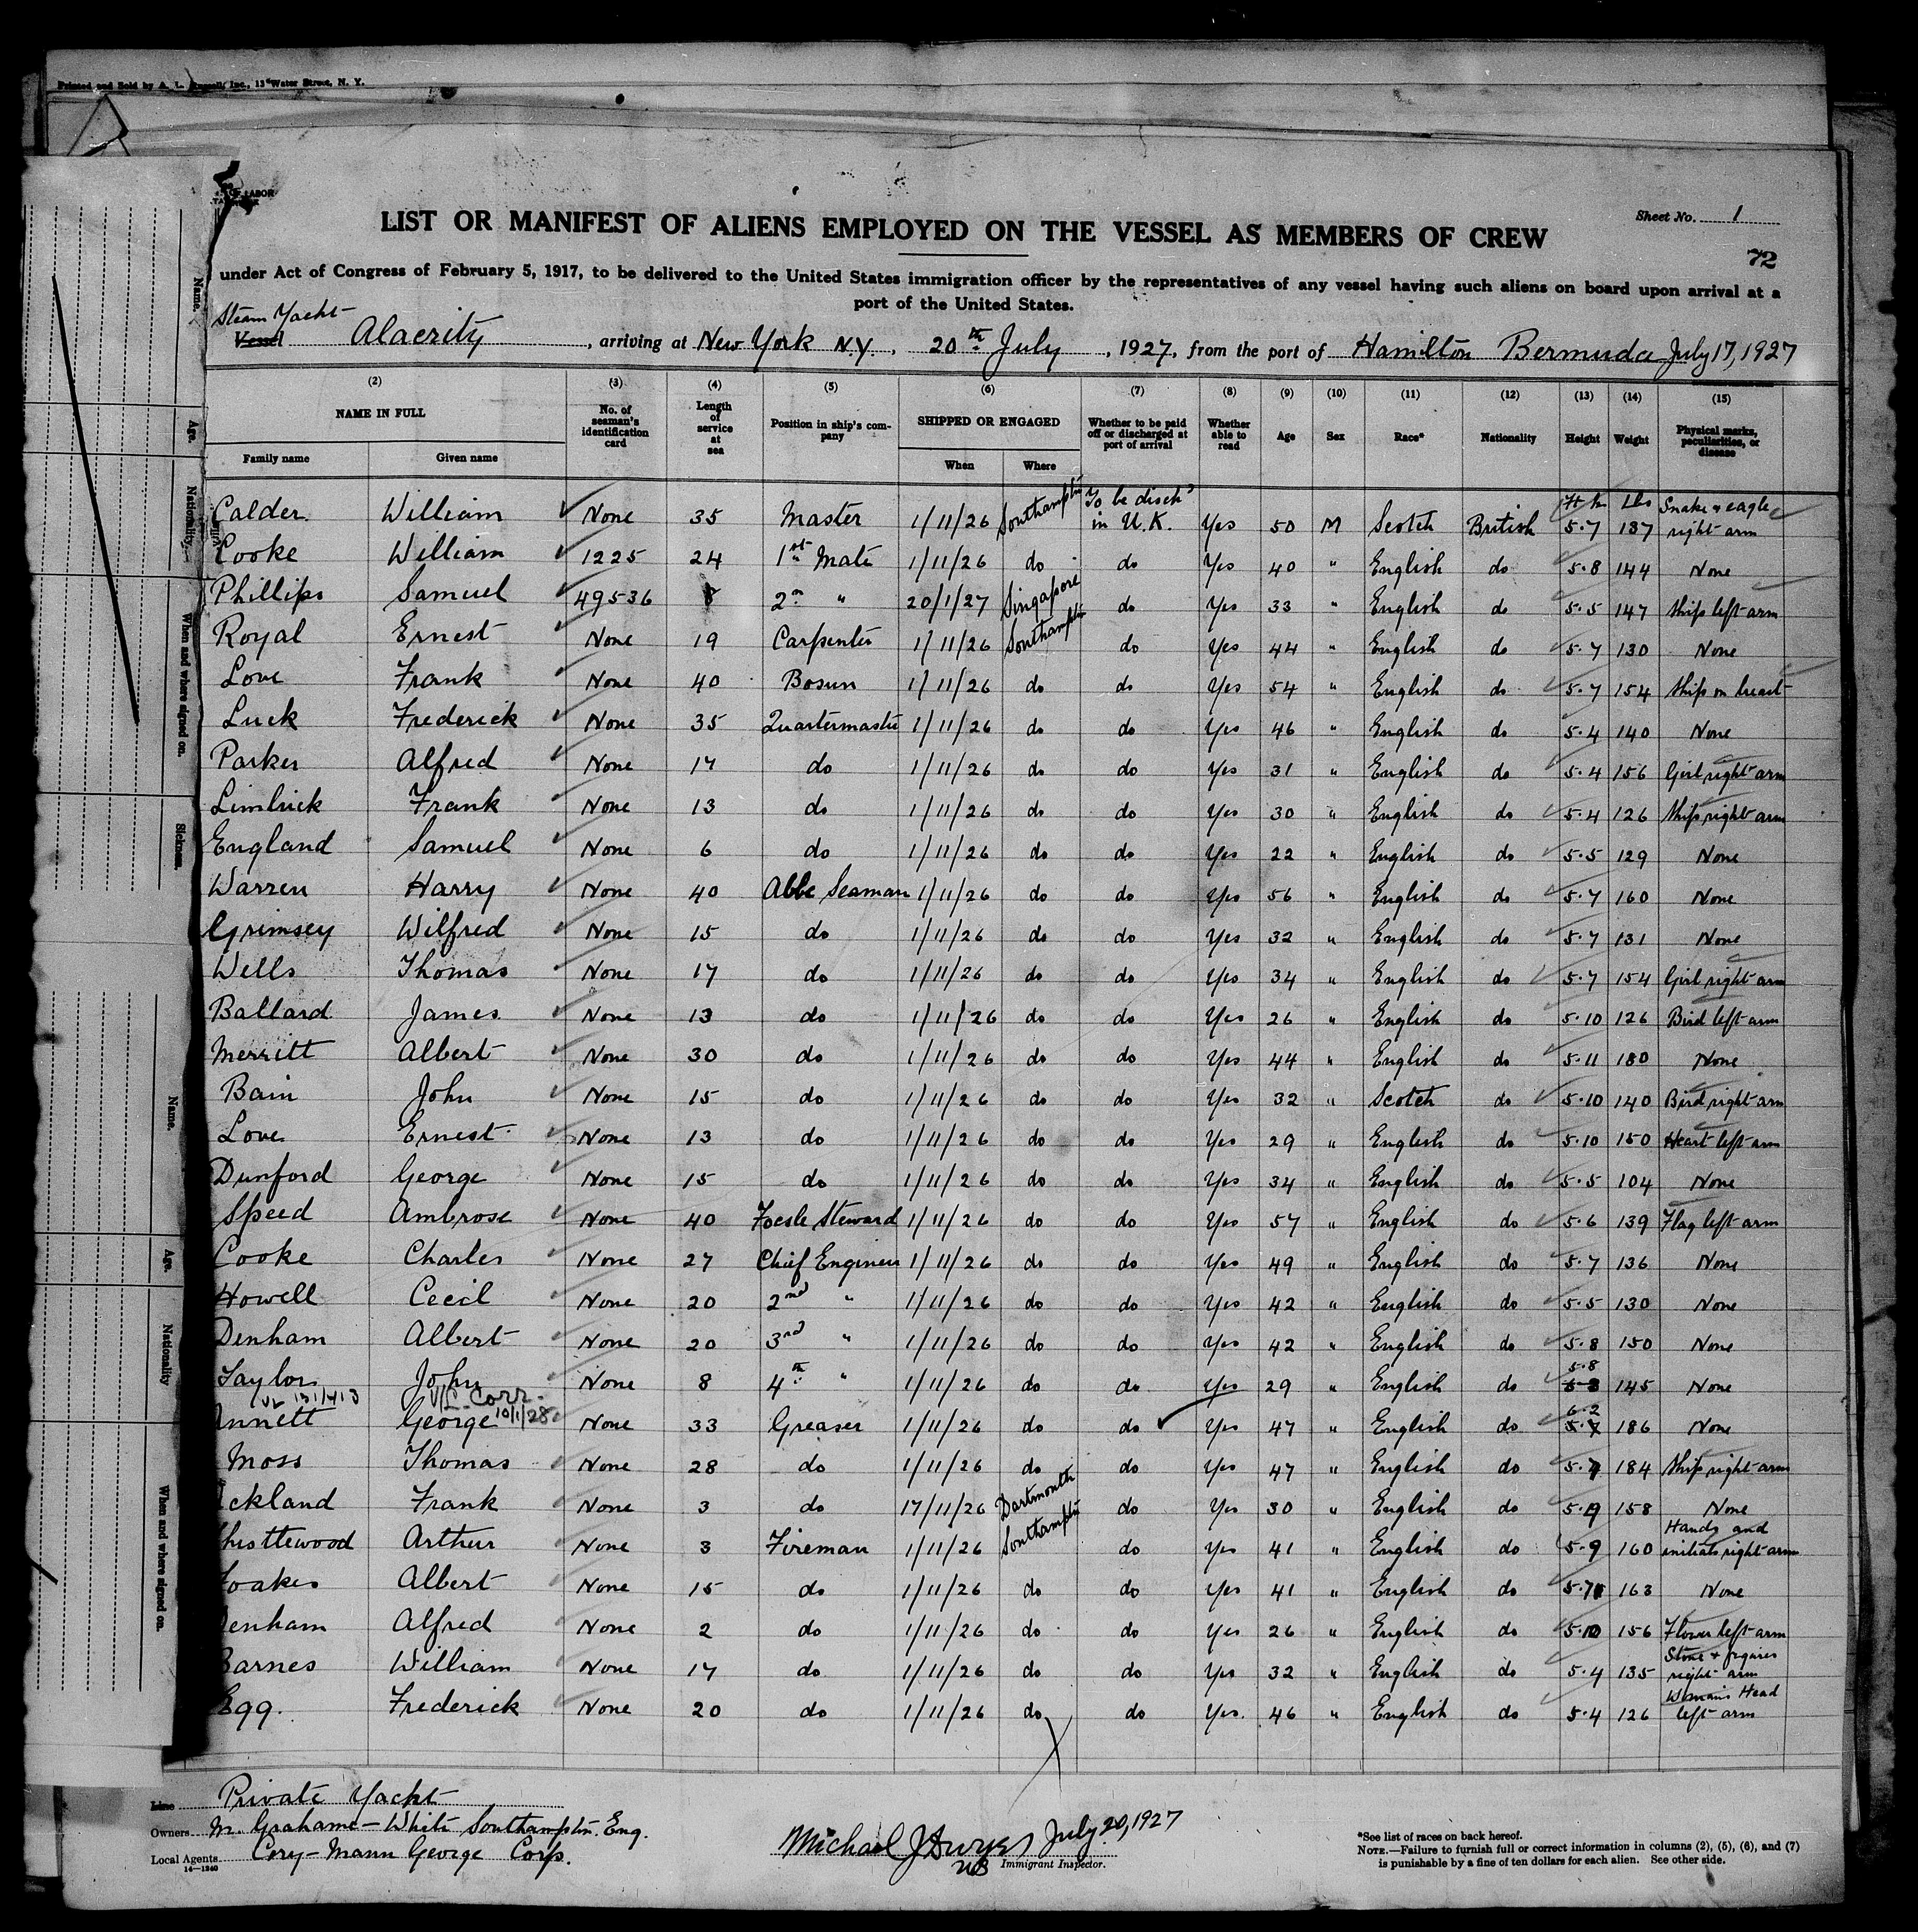 Printed and Sold by A. L. Russell, Inc., 13 Water Street, N. Y.
OF LABOR
LIST OR MANIFEST OF ALIENS EMPLOYED ON THE VESSEL AS MEMBERS OF CREW
Sheet No. 1
72
under Act of Congress of February 5, 1917, to be delivered to the United States immigration officer by the representatives of any vessel having such aliens on board upon arrival at a
port of the United States.
Steam Yacht
Vessel Alacrity, arriving at New York N.Y., 20th July, 1927, from the port of Hamilton Bermuda July 17, 1927
(2) (3) (4) (5) (6) (7) (8) (9) (10) (11) (12) (13) (14) (15)
NAME IN FULL No. of seaman's identification card Length of service at sea Position in ship's company SHIPPED OR ENGAGED Whether to be paid off or discharged at port of arrival Whether able to read Age Sex Race* Nationality Height Weight Physical marks, peculiarities, or disease
Family name Given name When Where
Calder William None 35 Master 1/11/26 Southampton To be disch'd in U.K. Yes 50 M Scotch British Ft In 5.7 Lbs 137 Snake & eagle right arm
Cooke William 1225 24 1st Mate 1/11/26 do do Yes 40 " English do 5.8 144 None
Phillips Samuel 49536 8 2nd " 20/1/27 Singapore do Yes 33 " English do 5.5 147 Ship left arm
Royal Ernest None 19 Carpenter 1/11/26 Southampton do Yes 44 " English do 5.7 130 None
Love Frank None 40 Bosun 1/11/26 do do Yes 54 " English do 5.7 154 Ship on breast
Luck Frederick None 35 Quartermaster 1/11/26 do do Yes 46 " English do 5.4 140 None
Parker Alfred None 17 do 1/11/26 do do Yes 31 " English do 5.4 156 Girl right arm
Limbrick Frank None 13 do 1/11/26 do do Yes 30 " English do 5.4 126 Ship right arm
England Samuel None 6 do 1/11/26 do do Yes 22 " English do 5.5 129 None
Warren Harry None 40 Able Seaman 1/11/26 do do Yes 56 " English do 5.7 160 None
Grimsey Wilfred None 15 do 1/11/26 do do Yes 32 " English do 5.7 131 None
Wells Thomas None 17 do 1/11/26 do do Yes 34 " English do 5.7 154 Girl right arm
Ballard James None 13 do 1/11/26 do do Yes 26 " English do 5.10 126 Bird left arm
Merritt Albert None 30 do 1/11/26 do do Yes 44 " English do 5.11 180 None
Bain John None 15 do 1/11/26 do do Yes 32 " Scotch do 5.10 140 Bird right arm
Love Ernest None 13 do 1/11/26 do do Yes 29 " English do 5.10 150 Heart left arm
Dunford George None 15 do 1/11/26 do do Yes 34 " English do 5.5 104 None
Speed Ambrose None 40 Focsle Steward 1/11/26 do do Yes 57 " English do 5.6 139 Flag left arm
Cooke Charles None 27 Chief Engineer 1/11/26 do do Yes 49 " English do 5.7 136 None
Howell Cecil None 20 2nd " 1/11/26 do do Yes 42 " English do 5.5 130 None
Denham Albert None 20 3rd " 1/11/26 do do Yes 42 " English do 5.8 150 None
Taylor John None 8 4th " 1/11/26 do do Yes 29 " English do 5.8 145 None
V/L Corr. 10/1/28
Annett George None 33 Greaser 1/11/26 do do Yes 47 " English do 6.2 186 None
Moss Thomas None 28 do 1/11/26 do do Yes 47 " English do 5.7 184 Ship right arm
ckland Frank None 3 do 17/11/26 Dartmouth do Yes 30 " English do 5.9 158 None
histlewood Arthur None 3 Fireman 1/11/26 Southampton do Yes 41 " English do 5.9 160 Hands and initials right arm
Foakes Albert None 15 do 1/11/26 do do Yes 41 " English do 5.7 163 None
Denham Alfred None 2 do 1/11/26 do do Yes 26 " English do 5.10 156 Flower left arm
Barnes William None 17 do 1/11/26 do do Yes 32 " English do 5.4 135 Stone & figures right arm
Egg. Frederick None 20 do 1/11/26 do do Yes. 46 " English do 5.4 126 Woman's Head left arm
Line Private Yacht
Owners M. Grahame-White Southampton. Eng.
Local Agents Cory-Mann George Corp.
14—1240
Michael J Dwyer July 20, 1927
Immigrant Inspector.
*See list of races on back hereof.
NOTE.—Failure to furnish full or correct information in columns (2), (5), (6), and (7)
is punishable by a fine of ten dollars for each alien. See other side.
Name.
Age.
Nationality.
When and where signed on.
Sickness.
Name.
Age.
Nationality
When and where signed on.